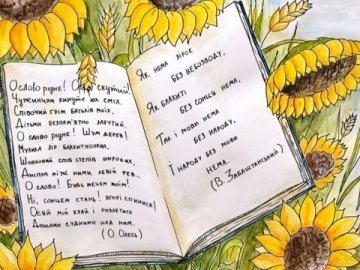 О слово рідне! Орле скутий!
Чужинцям кинуте на сміх.
Співочий грім батьків моїх
Дітьми безпам'ятно забутий.
О слово рідне! Шум дерев!
Музика зір блакитнооких,
Шовковий спів степів широких,
Дніпра між ними левій рев...
О слово! Будь мечем моїм!
Ні, сонцем стань! вгорі спинися!
Осяй мій край і розлетися
Дощами судними над ним.
(О. Олесь)
Як нема зірок
без небозводу,
Як блакиті
без сонця нема,
Так і мови нема
без народу,
І народу без мови
нема
(В. Забаштанський)